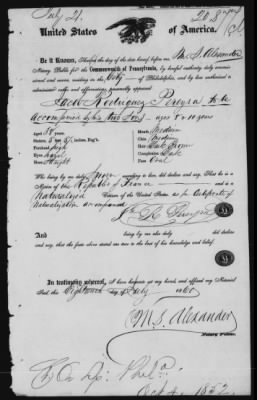 July 21.
United States of America.
Be it Known, That on the day of the date hereof before me M. S. Alexander
Notary Public for the Commonwealth of Pennsylvania, by lawful authority duly commissioned
and sworn, residing in the City of Philadelphia, and by law authorized to
administer oaths and affirmations, personally appeared
Jacob Rodriguez Pereyra to be
accompanied by his two Sons - ages 8 & 10 years
Aged 58 years.
Stature 5 feet Eng's
Forehead high
Eyes hazel
Nose Straight
Mouth Medium
Chin Medium
Hair Dark Brown
Complexion Dark
Face Oval
Who being by me duly Sworn according to law, did declare and say, That he is a
Native of the Republic of France and a
Naturalized Citizen of the United States, as per Certificate of
Naturalization accompanied
And being by me also duly did declare
and say, that the facts above stated are true to the best of his knowledge and belief.
In testimony whereof, I have hereunto set my hand, and affixed my Notarial
Seal, this Eighteenth day of July 1860
M. S. Alexander
Notary Public.
Oct 4. 1852